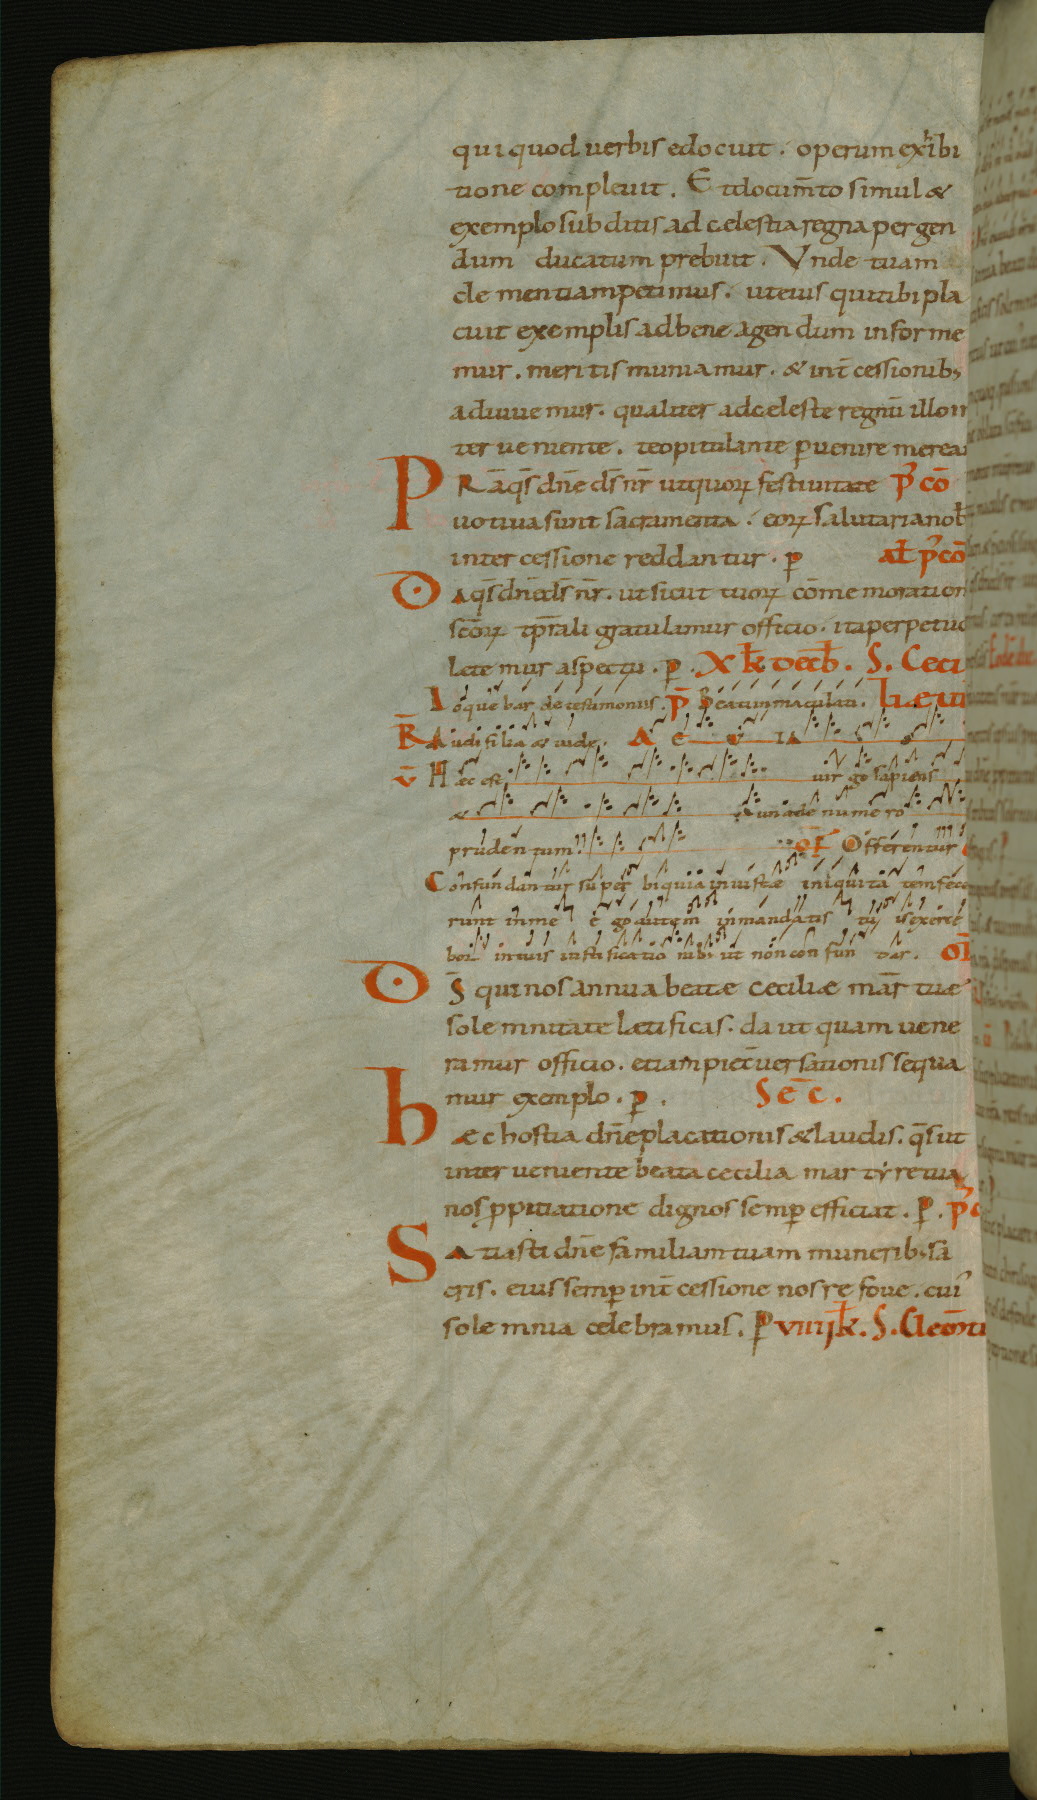 qui quod uerbis edocuit . operum exhibi
tione compleuit . Et docum̄to simul &
exemplo subditis ad celestia regna pergen
dum ducatum prebuit . Vnde tuam
clementiam petimus . ut eius qui tibi pla
cuit exemplis ad bene agendum informe
mur . meritis muniamur . & int̄cessionib;
adiuuemur . qualiter ad celeste regnū illo in
ter ueniente . te opitulante ꝑuenire merea
PRǣq̄s dn̄e ds̄ nr̄ ut quoꝝ festiuitate p̄ cō
uotiua sunt sacramenta . eoꝝ salutaria nob̄
intercessione reddantur . ꝑ al̄ p̄cō
Da q̄s dn̄e ds̄ nr̄ . ut sicut tuoꝝ cōmemoration
sc̄oꝝ tp̄rali gratulamur officio . ita perpetuo
letemur aspectu . ꝑ . X k̄ decb̄ . S . Ceci
Loquebar de testimoniis . p̄ Beati inmaculati . liæ uir
R̄ Audi filia & uide . A E U IA
v̄ Hæc est uirgo sapiens
& una de numero
prudentum . oF̄ Offerentur
Confundantur superbi quia iniustæ iniquitatem fece
runt in me ego autem in mandatis tuis exerce
bor in tuis iustificationibus ut non confundar . oR̄
Ds̄ qui nos annua beatæ ceciliæ mar̄ tuæ
solemnitate lætificas . da ut quam uene
ramur officio . etiam pie c̄uersationis sequa
mur exemplo . ꝑ . SEC̄ .
hæc hostia dn̄e placationis & laudis . q̄s ut
interueniente beata cecilia martyre tua
nos ꝓpitiatione dignos semꝑ efficiat . ꝑ . p̄c
SAtiasti dn̄e familiam tuam munerib; sa
cris . eius semꝑ int̄cessione nos refoue . cui'
solemnia celebramus . ꝑ viiij k̄ . S . Clem̄ti